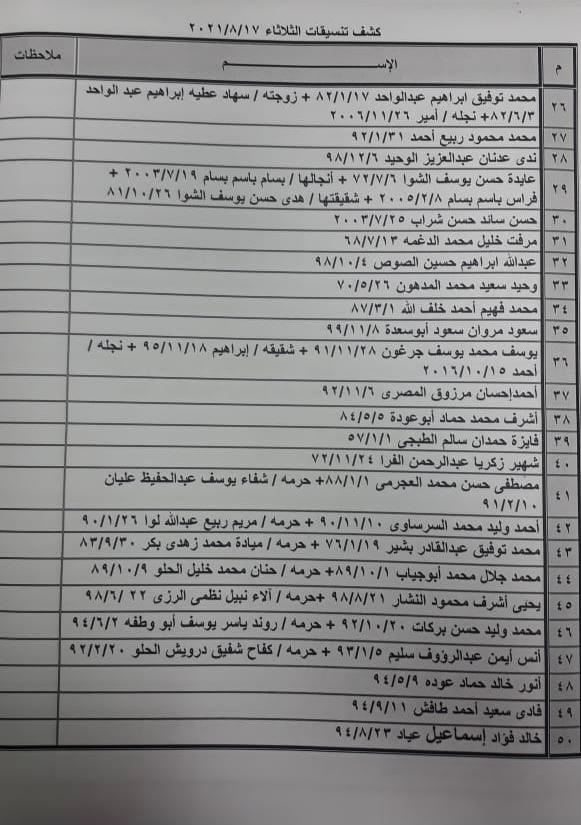 كشف تنسيقات الثلاثاء ٢٠٢١/٨/١٧
م الإســـم ملاحظات
٢٦ محمد توفيق ابراهيم عبدالواحد ٨٢/١/١٧ + زوجته / سهاد عطيه إبراهيم عبد الواحد
٨٢/٦/٣+ نجله / أمير ٢٠٠٦/١١/٢٦
٢٧ محمد محمود ربيع أحمد ٩٢/١/٣١
٢٨ ندى عدنان عبدالعزيز الوحيد ٩٨/١٢/٦
٢٩ عايدة حسن يوسف الشوا ٧٢/٧/٦ + أنجالها / بسام باسم بسام ٢٠٠٣/٧/١٩ +
فراس باسم بسام ٢٠٠٥/٢/٨ + شقيقتها / هدى حسن يوسف الشوا ٨١/١٠/٢٦
٣٠ حسن ساند حسن شراب ٢٠٠٣/٧/٢٥
٣١ مرفت خليل محمد الدغمه ٦٨/٧/١٣
٣٢ عبدالله ابراهيم حسين الصوص ٩٨/١٠/٤
٣٣ وحيد سعيد محمد المدهون ٧٠/٥/٢٦
٣٤ محمد فهيم أحمد خلف الله ٨٧/٣/١
٣٥ سعود مروان سعود أبوسعدة ٩٩/١١/٨
٣٦ يوسف محمد يوسف جرغون ٩١/١١/٢٨ + شقيقه / إبراهيم ٩٥/١١/١٨ + نجله /
أحمد ٢٠١٦/١٠/١٥
٣٧ أحمدإحسان مرزوق المصرى ٩٢/١١/٦
٣٨ أشرف محمد حماد أبوعودة ٨٤/٥/٥
٣٩ فايزة حمدان سالم الطبجى ٥٧/١/١
٤٠ شهير زكريا عبدالرحمن الفرا ٧٢/١١/٢٤
٤١ مصطفى حسن محمد العجرمى ٨٨/١/١+ حرمه / شفاء يوسف عبدالحفيظ عليان
٩١/٢/١٠
٤٢ أحمد وليد محمد السرساوى ٩٠/١١/١٠ + حرمه / مريم ربيع عبدالله لوا ٩٠/١/٢٦
٤٣ محمد توفيق عبدالقادر بشير ٧٦/١/١٩ + حرمه / ميادة محمد زهدى بكر ٨٣/٩/٣٠
٤٤ محمد جلال محمد أبوجياب ٨٩/١٠/١+ حرمه / حنان محمد خليل الحلو ٨٩/١٠/٩
٤٥ يحيى أشرف محمود النشار ٩٨/٨/٢١ +حرمه / آلاء نبيل نظمى الرزى ٢٢ /٩٨/٦
٤٦ محمد وليد حسن بركات ٩٢/١٠/٢٠ + حرمه / روند ياسر يوسف أبو وطفه ٩٤/٦/٢
٤٧ أنس أيمن عبدالرؤوف سليم ٩٣/١/٥ + حرمه / كفاح شفيق درويش الحلو ٩٢/٢/٢٠
٤٨ أنور خالد حماد عوده ٩٤/٥/٩
٤٩ فادى سعيد أحمد طافش ٩٤/٩/١١
٥٠ خالد فؤاد إسماعيل عياد ٩٤/٨/٢٣